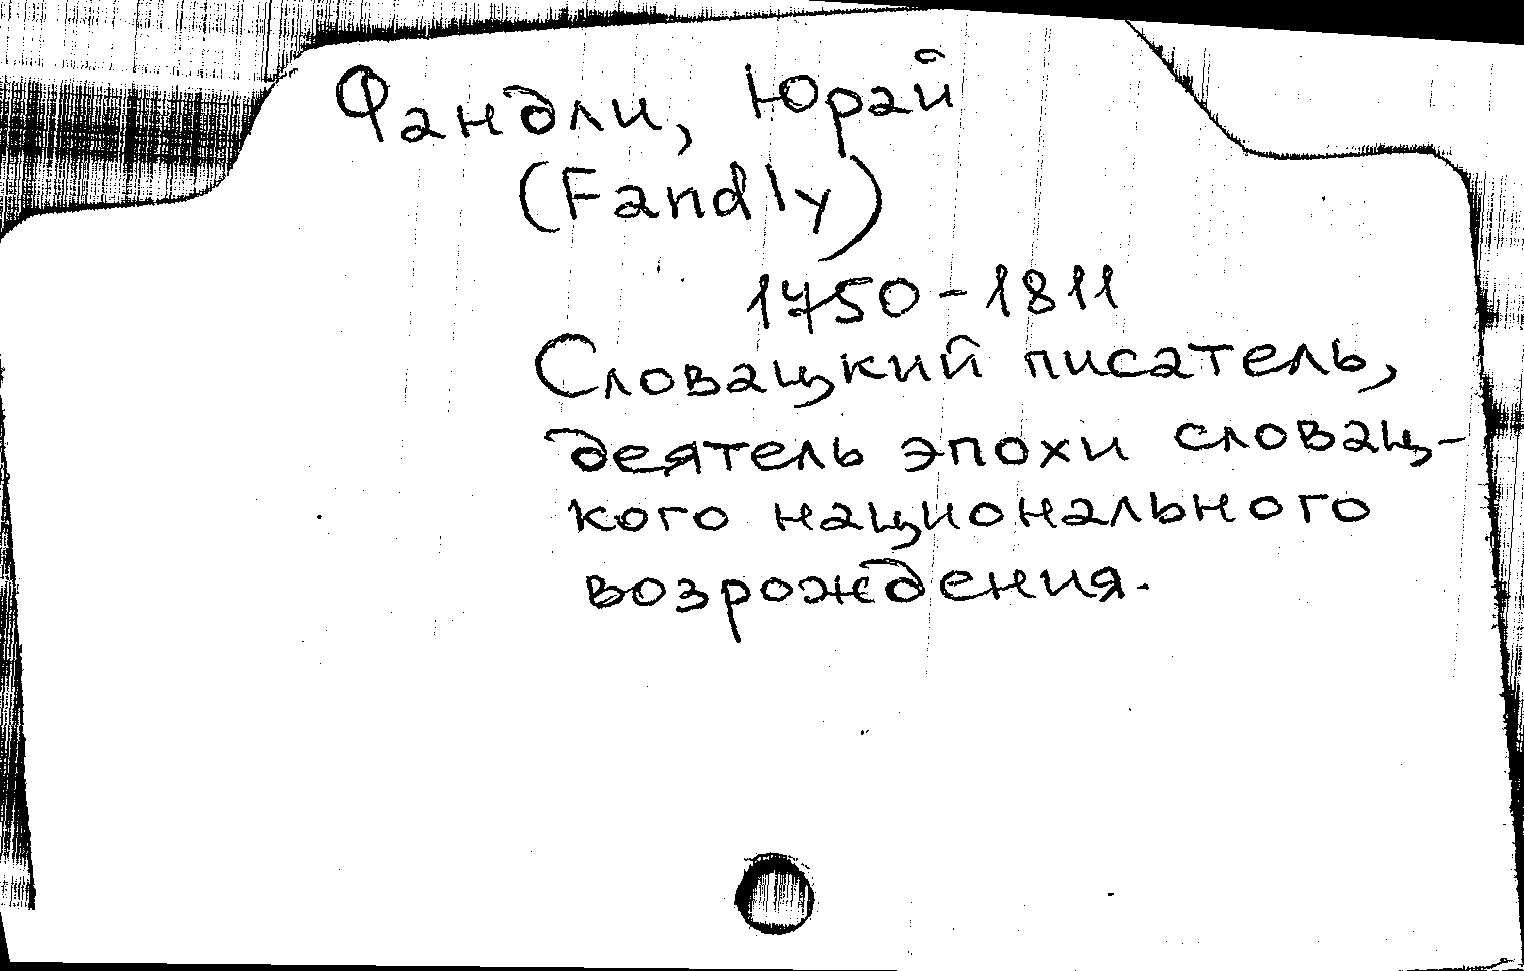 Фандли, Юрай
(Fandly)
1750-1811
Словацкий писатель,
деятель эпохи словац-
кого национального
возрождения.